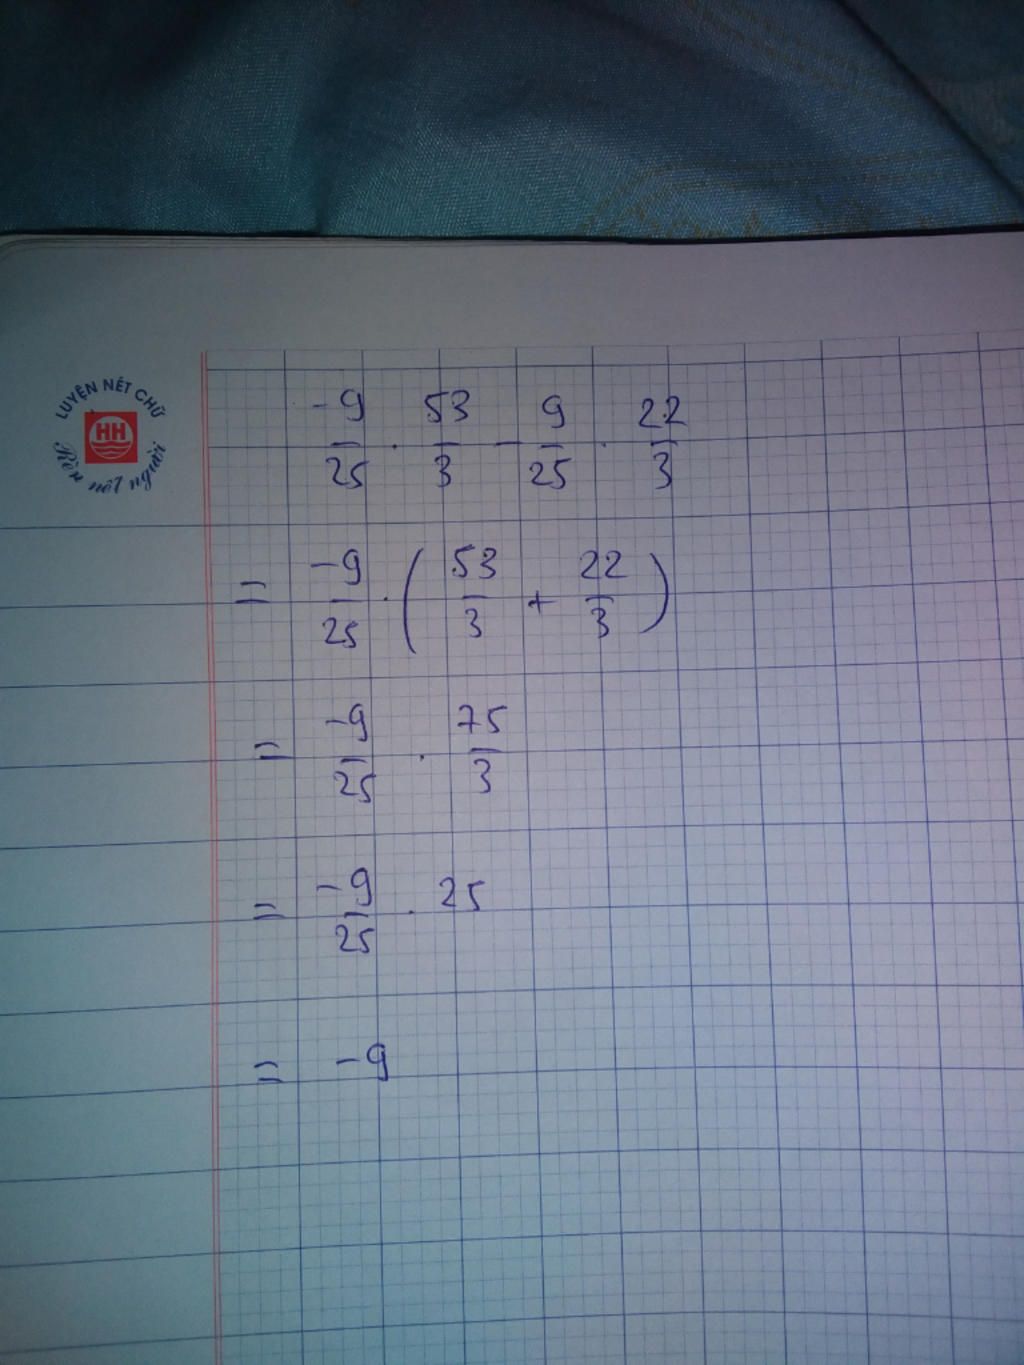 LUYỆN NÉT CHỮ
HH
Rèn nết người
-9/25 . 53/3 - 9/25 . 22/3
= -9/25 . (53/3 + 22/3)
= -9/25 . 75/3
= -9/25 . 25
= -9